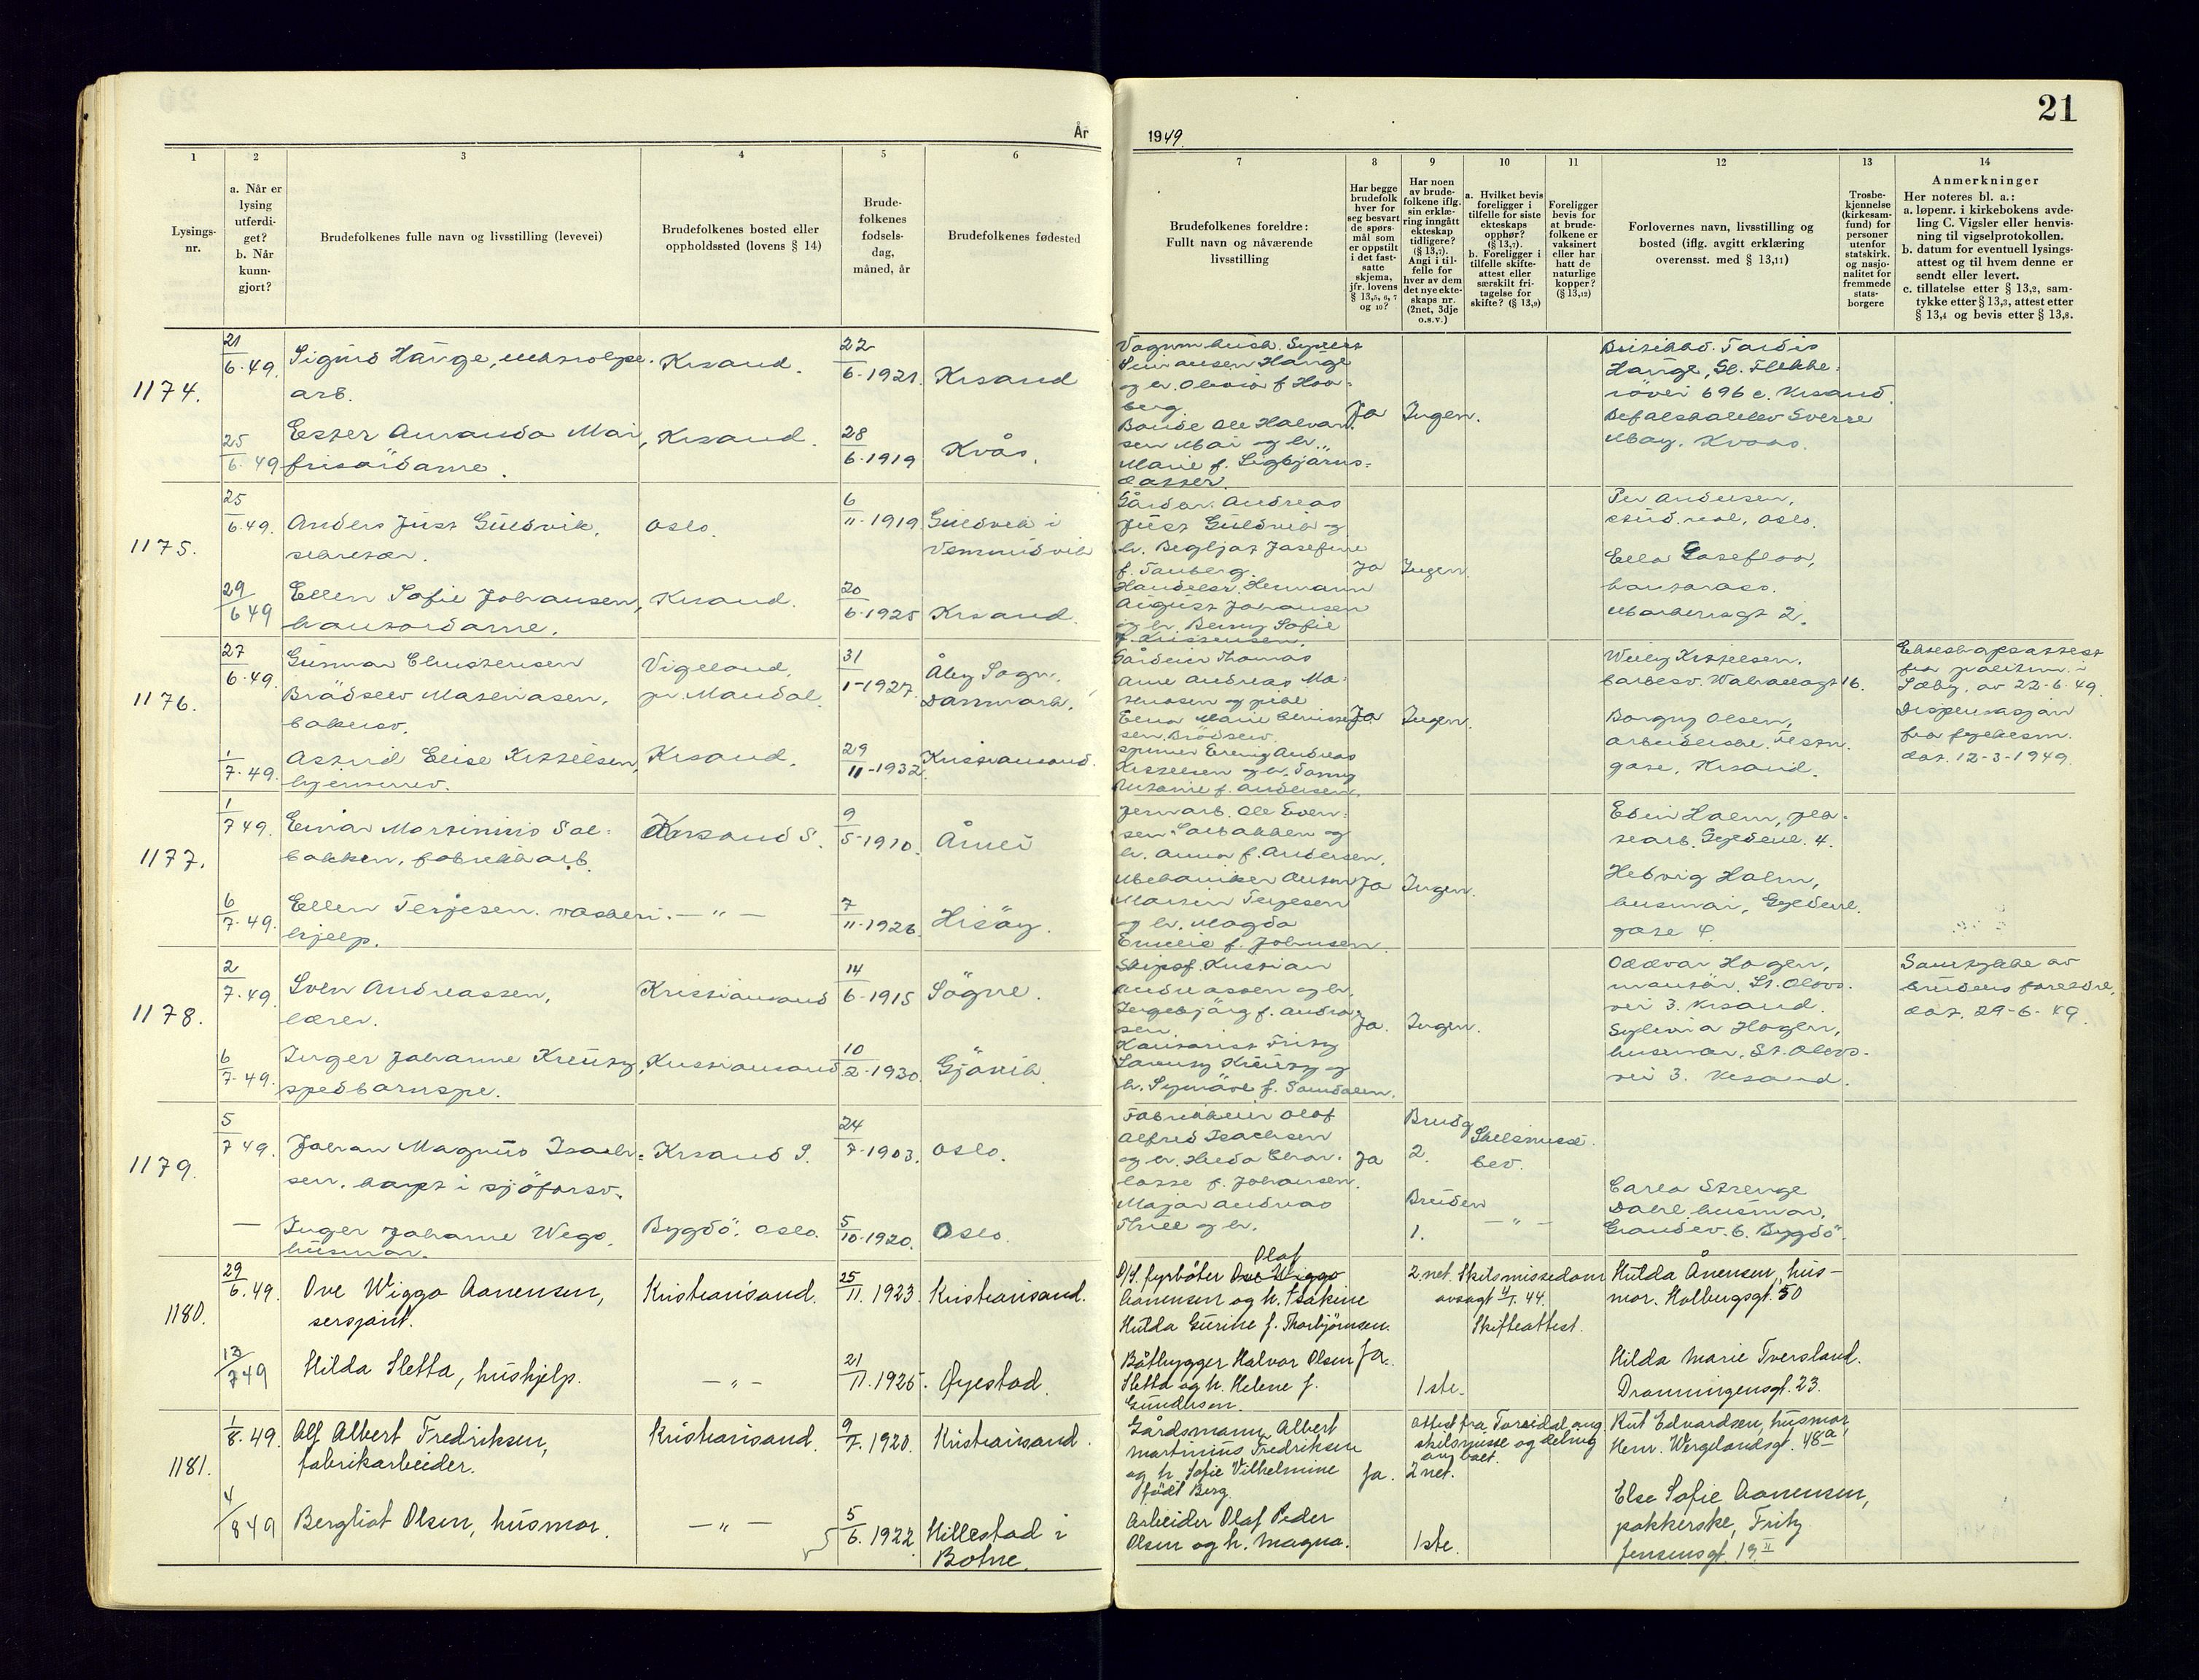 21
År
1949.
1
2
3
4
5
6
7
8
9
10
11
12
13
14
Lysings-
nr.
a. Når er
lysing
utferdi-
get?
b. Når
kunn-
gjort?
Brudefolkenes fulle navn og livsstilling (levevei)
Brudefolkenes bosted eller
oppholdssted (lovens § 14)
Brude-
folkenes
fodsels-
dag,
måned, år
Brudefolkenes fødested
Brudefolkenes foreldre:
Fullt navn og nåværende
livsstilling
Har begge
brudefolk
hver for
seg besvart
de spørs-
mål som
er oppstilt
i det fast-
satte
skjema,
jfr. lovens
§ 13,5, 6, 7
og 10?
Har noen
av brude-
folkene iflg.
sin erklæ-
ring inngått
ekteskap
tidligere?
(§ 13,7).
Angi i til-
felle for
hver av dem
det nye ekte-
skaps nr.
(2net, 3dje
o.s.v.)
a. Hvilket bevis
foreligger i
tilfelle for siste
ekteskaps
opphør?
(§ 13,7).
b. Foreligger i
tilfelle skifte-
attest eller
særskilt fri-
tagelse for
skifte? (§ 13,9)
Foreligger
bevis for
at brude-
folkene er
vaksinert
eller har
hatt de
naturlige
kopper?
(§ 13,12)
Forlovernes navn, livsstilling og
bosted (iflg. avgitt erklæring
overensst. med § 13,11)
Trosbe-
kjennelse
(kirkesam-
fund) for
personer
utenfor
statskirk.
og nasjo-
nalitet for
fremmede
stats-
borgere
Anmerkninger
Her noteres bl. a.:
a. løpenr. i kirkebokens avde-
ling C. Vigsler eller henvis-
ning til vigselprotokollen.
b. datum for eventuell lysings-
attest og til hvem denne er
sendt eller levert.
c. tillatelse etter § 13,2, sam-
tykke etter § 13,3, attest etter
§ 13,4 og bevis etter § 13,8.
1174.
21/6.49.
Sigurd Hauge,
arb.
Krsand.
22/6-1921.
Krsand
Hauge
og h. Olivia f. Hov-
berg.
Ja
Ingen.
Hauge, St. Flekke-
röyvei 696 c. Krsand.
25/6.49
Ester Amanda Moi,
frisördame.
Krsand.
28/6-1919
Kvås.
Bonde Ole Halvor-
sen Moi og h.
Marie f. Sigbjörns-
datter.
Sverre
Moy. Kvaas.
1175.
25/6.49.
Anders Just Guldvik,
sekretær.
Oslo.
6/11-1919
Guldvik i
Vemundvik
Gårdbr. Andreas
Just Guldvik og
h. Bergljot Josefine
f. Tanberg.
Ja
Ingen.
Per Andersen,
stud. real, Oslo.
29/6 49
Ellen Sofie Johansen,
kontordame.
Krsand.
20/6-1925
Krsand.
Handelsr. Hermann
August Johansen
og h. Benny Sofie
f. Kristensen.
Ella
kontorass.
Markensgt 2.
1176.
27/6.49.
Gunnar Christensen
Brödslev Mateiasen,
bakersv.
Vigeland,
pr. Mandal.
31/1-1927.
Åby Sogn.
Danmark.
Gårdeier Thomas
Arne Andreas
Ja
Ingen.
Willy Kittelsen,
barbersv. Walhallagt 16.
Ekteskapsattest
fra politim. i
Sæby, av 22-6-49.
Dispensasjon
fra fylkesm.
dat. 12-3-1949.
1/7.49.
Astrid Elise Kittelsen,
hjemmev.
Krsand.
29/11-1932.
Kristiansand.
Andreas
Kittelsen og h. Fanny
Antonie f. Andersen.
Borgny Olsen,
arbeiderske. Festn.
gate, Krsand.
1177.
1/7 49.
Einar Martinius Sol-
bakken, fabrikkarb.
Krsand S.
9/5-1910.
Åmli
Jernarb. Ole Even-
sen Solbakken og
h. Anna f. Andersen.
Ja
Ingen.
Edvin Holm, pla-
tearb. Gyldenl. 4.
6/7.49.
Ellen Terjesen. vaskeri-
hjelp.
— " —
7/11-1926.
Hisöy.
Mekaniker Anton
Martin Terjesen
og h. Magda
Emelie f. Johnsen.
Hedvig Holm,
husmor, Gyldenl.
gate 4.
1178.
2/7.49.
Sven Andreassen,
lærer.
Kristiansand
14/6-1915
Sögne.
Skipsf. Kristian
Andreassen og h.
Ingebjörg f. Andreas-
sen.
Ja.
Ingen.
Oddvar Hogen,
montör, St. Olavs-
vei 3. Krsand.
Samtykke av
brudens foreldre,
dat. 29-6-49.
6/7.49.
Inger Johanne Kreutz,
spedbarnspl.
Kristiansand
10/2-1930.
Gjövik.
Kontorist Fritz
Kreutz og
h. Synnöve f. Samdalen.
Sylvia Hogen,
husmor, St. Olavs-
vei 3. Krsand.
1179.
5/7 49.
Johan Magnus Isach-
sen. kapt i sjöforsv.
Krsand S.
24/7-1903.
Oslo.
Fabrikkeier Olaf
Alfred Isachsen
og h. Hulda Char-
lotte f. Johansen.
Ja
Brudg
2.
Skilsmisse
bev.
—
Inger Johanne Wego,
husmor.
Bygdö. Oslo.
5/10-1920.
Oslo.
Major Andreas
og h.
Bruden
1.
— " —
Carla Strenge
Dahl, husmor,
6. Bygdö
1180.
29/6.49.
Ove Wiggo Aanensen,
sersjant.
Kristiansand.
25/11.1923.
Kristiansand.
Olaf
D/S. fyrböter Ove Wiggo
Aanensen og h. Isakine
Hulda Gurine f. Thorbjörnsen.
2 net. Skilsmissedom
avsagt 4/1. 44.
Skifteattest.
Hulda Ånensen, hus-
mor. Holbergsgt. 50
13/7 49
Hilda Sletta, hushjelp.
— " —
21/11.1925.
Øyestad.
Båtbygger Halvor Olsen
Sletta og h. Helene f.
Gundersen.
Ja.
1ste.
Hilda Marie Tversland.
Dronningensgt. 23.
1181.
1/8.49.
Alf Albert Fredriksen,
fabrikarbeider.
Kristiansand.
9/7.1920.
Kristiansand.
Gårdsmann Albert
Martinius Fredriksen
og h. Sofie Vilhelmine
född Berg.
Ja.
Attest fra Torridal ang.
skilsmisse og deling
av boet.
2 net.
Rut Edvardsen, husmor,
Henr. Wergelandsgt. 48a
4/8 49
Bergliot Olsen, husmor.
— " —
5/6.1922
Hillestad i
Botne.
Arbeider Olaf Peder
Olsen og h. Magna.
1ste.
Else Sofie Aanensen,
pakkerske, Fritz
Jensensgt. 19 II